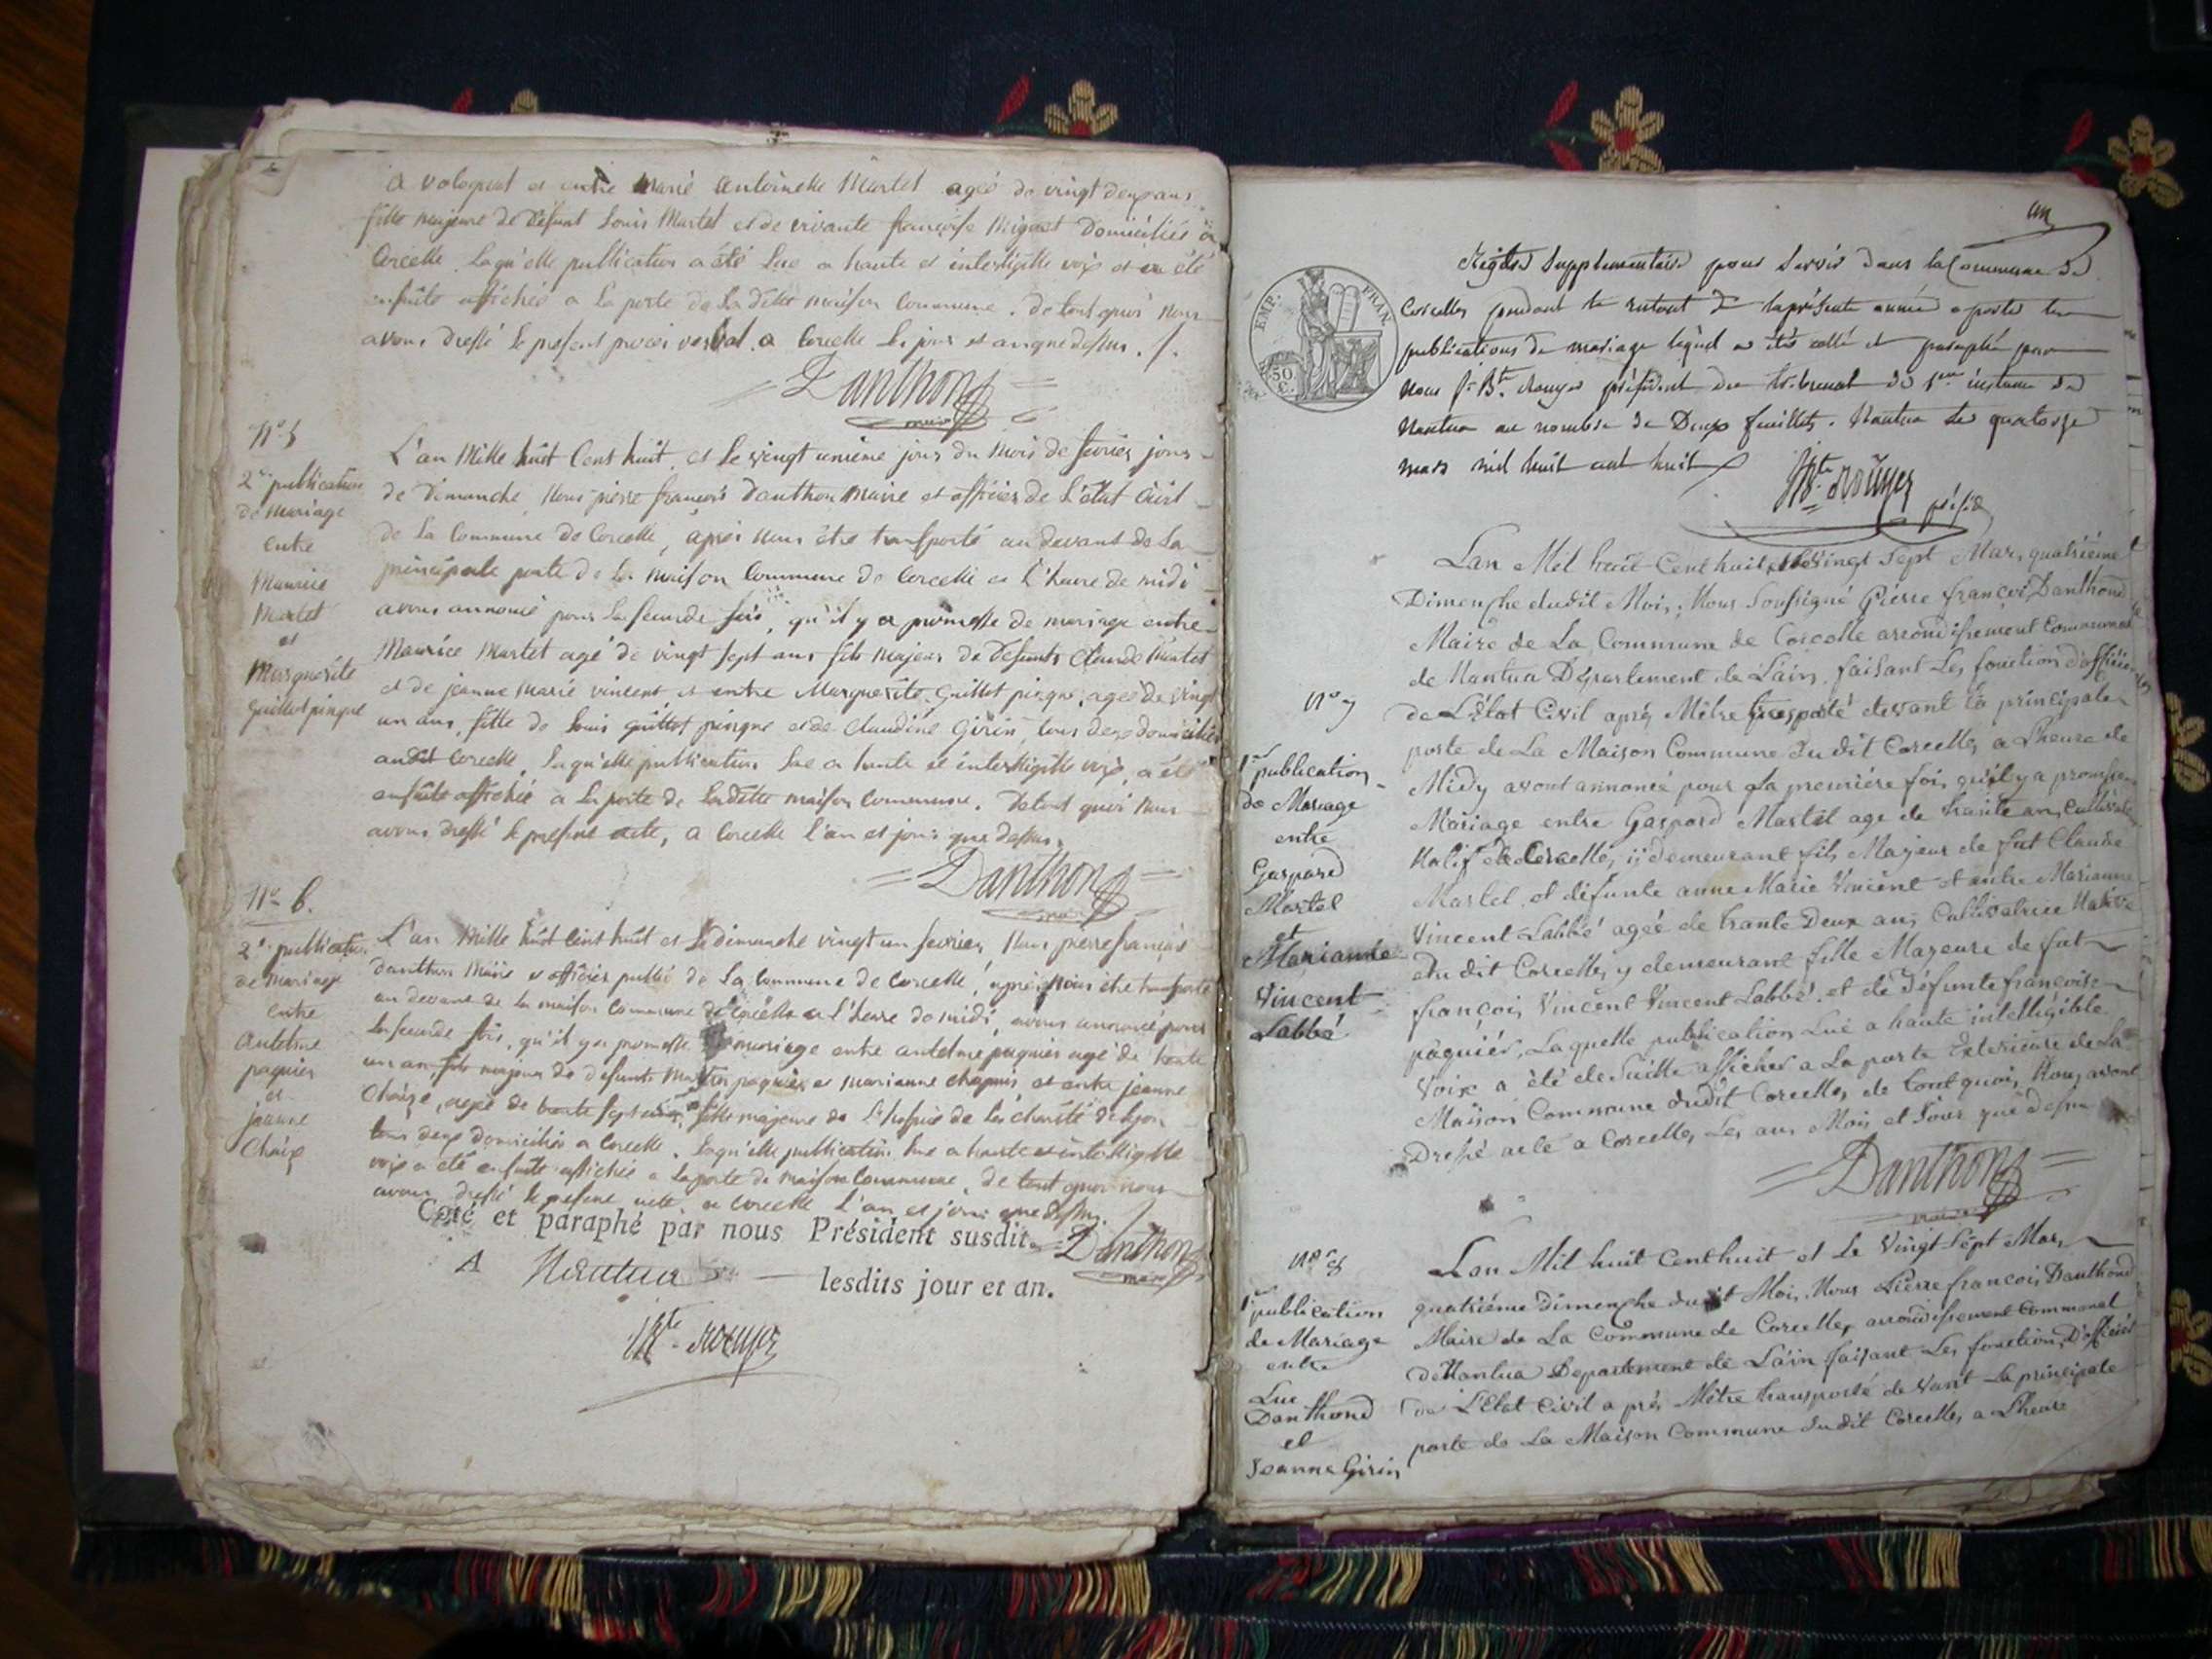 a valognat et entre marie antoinette Martel agée de vingt deux ans
fille majeure de defunt Louis Martel et de vivante françoise Mignot domiciliés a
Corcelle. Laqu'elle publication a été lue a haute et intelligible voix et a été
ensuite affichée a la porte de la dette maison commune. de tout quoi nous
avons dressé le present procès verbal a Corcelle les jour et an que dessus.
Danthon
maire
N° 5
2e publication
de mariage
entre
Maurice
Martel
et
Marguerite
Guillot pingue
L'an mille huit Cent huit, et le vingt unième jour du mois de fevrier jour
de Dimanche, Nous pierre françois Danthon maire et officier de L'état Civil
de la Commune de Corcelle, après nous être transporté au devant de La
principale porte de la maison Commune de Corcelle a L'heure de midi
avons annoncé pour la seconde fois, qu'il y a promesse de mariage entre
Maurice Martel agé de vingt sept ans fils majeur de Defunts Claude Martel
et de jeanne marie vincent et entre Marguerite Guillot pingue, agée de vingt
un ans, fille de Louis guillot pingue et de Claudine Girin, tous deux domiciliés
audit Corcelle, Laqu'elle publication lue a haute et intelligible voix, a été
ensuite affichée a la porte de Ladette maison Commune. De tout quoi nous
avons dressé le present acte, a Corcelle l'an et jour que dessus.
Danthon
maire
N° 6.
2e publication
de mariage
entre
antelme
paquier
et
jeanne
Chaize
L'an Mille huit Cent huit et Le dimanche vingt un fevrier, Nous pierre françois
danthon Maire et officier public de La Commune de Corcelle, après nous être transporté
au devant de la maison Commune de Corcelle a l'heure de midi, avons annoncé pour
la seconde fois, qu'il y a promesse de mariage entre antelme paquier agé de trente
un an, fils majeur de defunts Martin paquier et marianne chapuis et entre jeanne
Chaize, agée de trente sept ans, fille majeure de L'hospice de la charité de Lyon
tous deux domiciliés a Corcelle. Laqu'elle publication lue a haute et intelligible
voix a été ensuite affichée a la porte de maison Commune, de tout quoi nous
avons dressé le present acte, a Corcelle L'an et jour que dessus.
Coté et paraphé par nous Président susdit. Danthon
maire
A Nantua lesdits jour et an.
J Bte Rouyer
un
EMP. FRAN.
50 C.
Registre Supplementaire pour servir dans la Commune de
Corcelles pendant le restant de la présente année a porter les
publications de mariage lequel a été cotté et paraphé par
Nous J. Bte. Rouyer président du tribunal de 1ere instance de
Nantua au nombre de Deux feuillets. Nantua le quatorze
mars mil huit cent huit
J Bte Rouyer
présid
N° 7
1ere publication
de Mariage
entre
Gaspard
Martel
et
Marianne
Vincent
Labbé
Lan Mil huit Cent huit et le Vingt Sept Mars, quatriéme
Dimenche dudit Mois, Nous Soussigné Pierre françois Danthond
Maire de La Commune de Corcelle arrondissement Communal
de Nantua Département de L'ain. faisant Les fonction d'officier
de L'état Civil aprés M'être transporté devant la principale
porte de La Maison Commune du dit Corcelles a L'heure de
Midy avont annoncé pour La première fois qu'il y a promesse
Mariage entre Gaspard Martel age de trante ans, Cultivateur
Natif de Corcelles, y demeurant fils Majeur de fut Claude
Martel, et défunte anne Marie Vincent et entre Marianne
Vincent Labbé ageé de trante Deux ans, Cultivatrice Native
du dit Corcelles y demeurant fille Majeure de fut
françois Vincent Vincent Labbé, et de Défunte françoise
paquier, Laquelle publication Lue a haute intelligible
Voix a été de Suitte afficher a La porte Exterieure de La
Maison Commune dudit Corcelles, de tout quoi, Nous avont
Dressé acte a Corcelles, Les ans Mois et Jour que dessu
Danthon
maire
N° 8
1ere publication
de Mariage
entre
Luc
Danthond
et
Jeanne Girin
Lan Mil huit Cent huit et Le Vingt Sept Mars,
quatriéme Dimenche dudit Mois, Nous Pierre françois Danthond
Maire de La Commune de Corcelles, arrondissement Communal
de Nantua Departement de L'ain faisant Les fonction, D'officier
de L'Etat Civil a prés Mêtre transporté de Vant La principale
porte de La Maison Commune dudit Corcelles, a L'heure